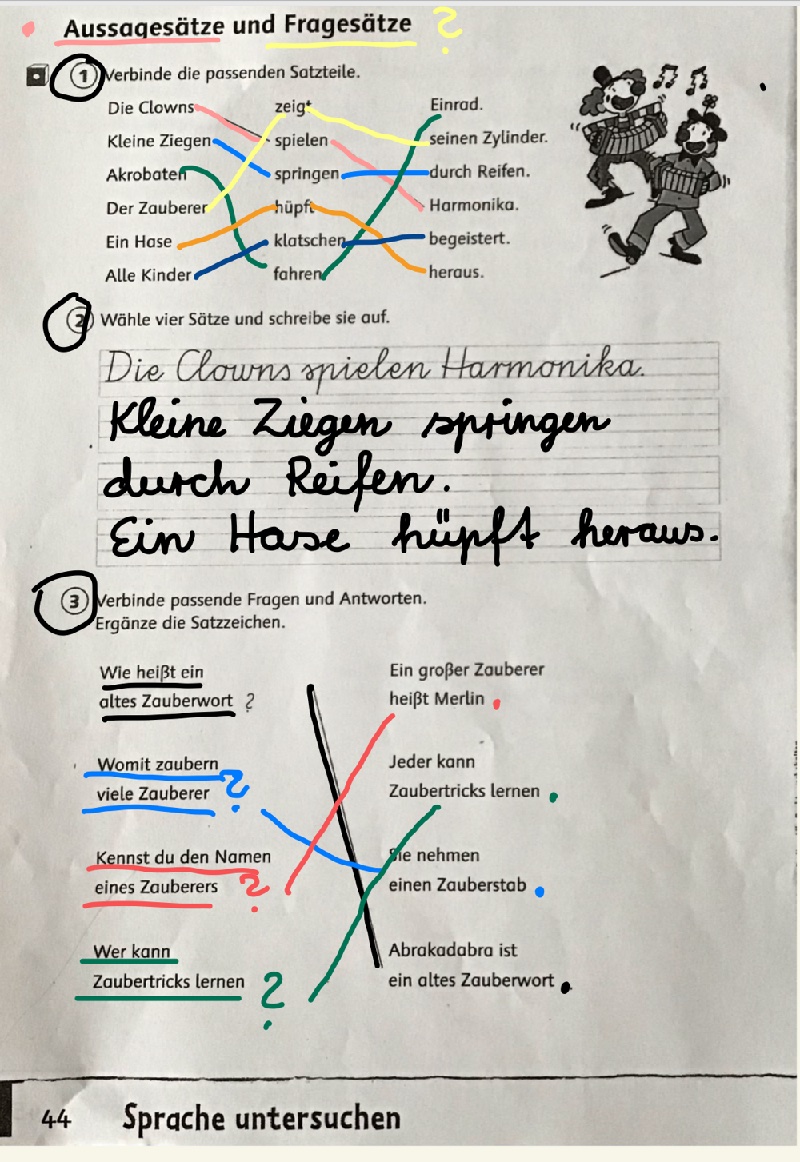 Aussagesätze und Fragesätze ?
1 Verbinde die passenden Satzteile.
Die Clowns zeigt Einrad.
Kleine Ziegen spielen seinen Zylinder.
Akrobaten springen durch Reifen.
Der Zauberer hüpft Harmonika.
Ein Hase klatschen begeistert.
Alle Kinder fahren heraus.
2 Wähle vier Sätze und schreibe sie auf.
Die Clowns spielen Harmonika.
Kleine Ziegen springen
durch Reifen.
Ein Hase hüpft heraus.
3 Verbinde passende Fragen und Antworten.
Ergänze die Satzzeichen.
Wie heißt ein
altes Zauberwort ?
Womit zaubern
viele Zauberer ?
Kennst du den Namen
eines Zauberers ?
Wer kann
Zaubertricks lernen ?
Ein großer Zauberer
heißt Merlin .
Jeder kann
Zaubertricks lernen .
Sie nehmen
einen Zauberstab .
Abrakadabra ist
ein altes Zauberwort .
44 Sprache untersuchen